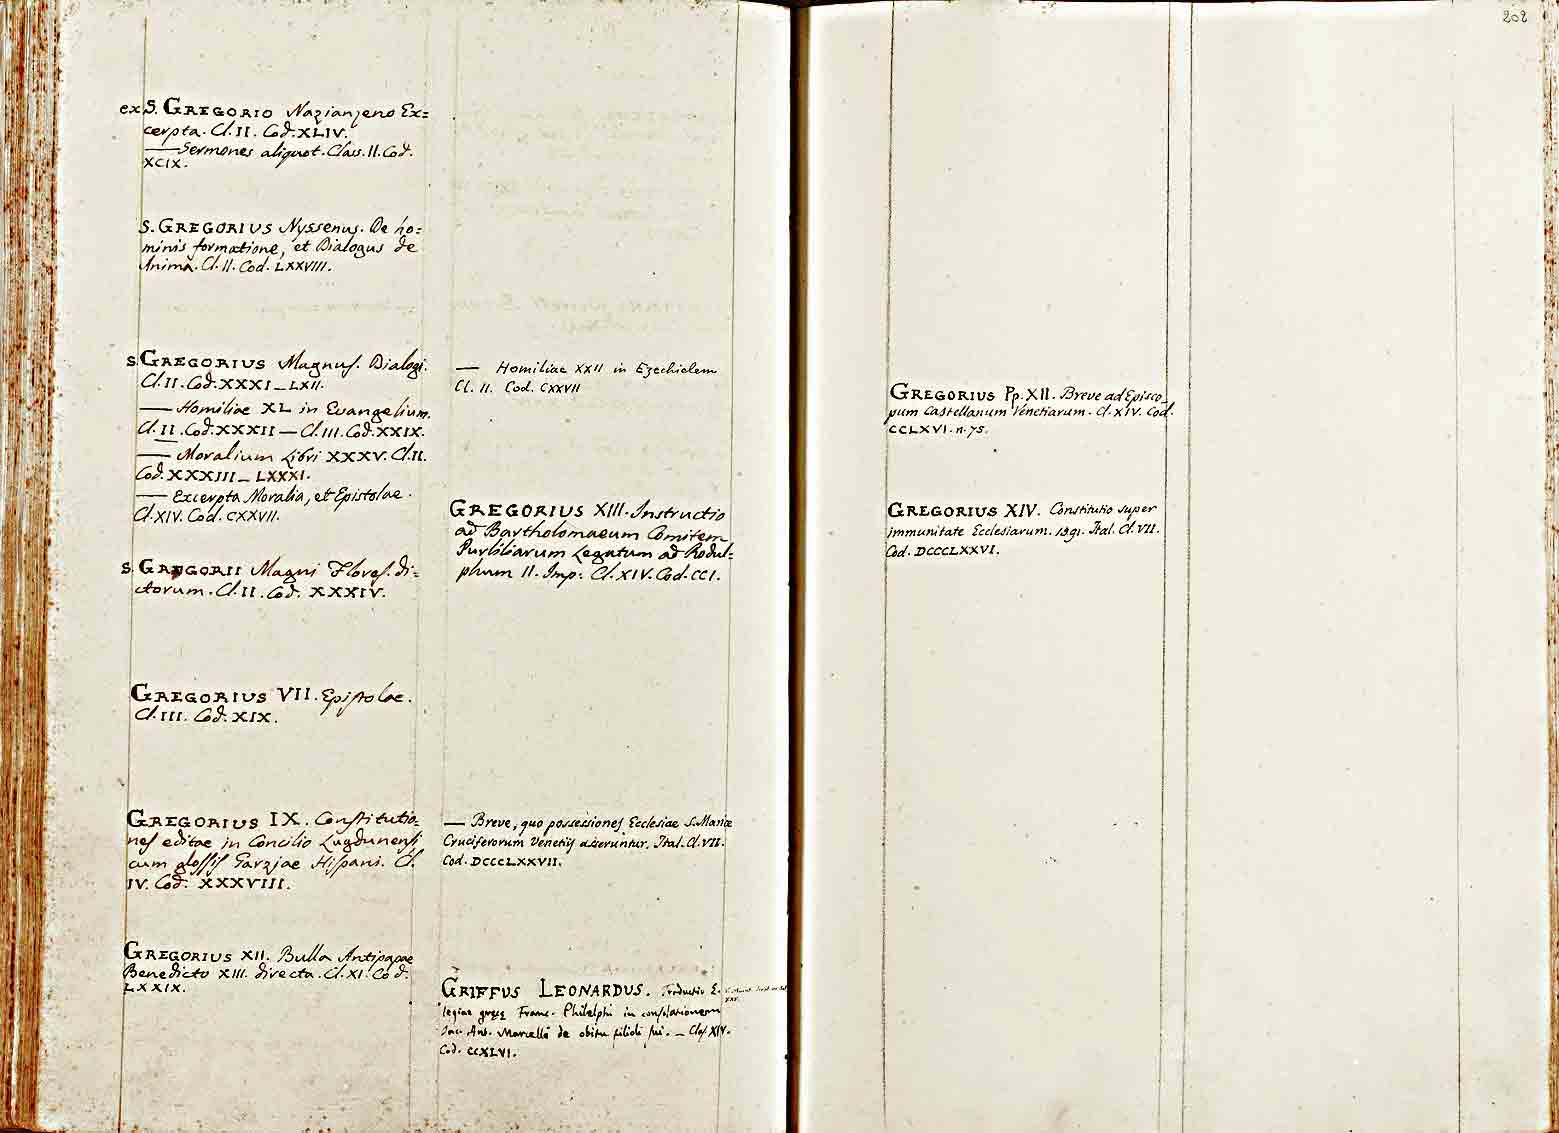 ex S. GREGORIO Nazianzeno Ex=
cerpta. Cl. II. Cod. XLIV.
— Sermones aliquot. Class. II. Cod.
XCIX.
S. GREGORIUS Nyssenus. De ho=
minis formatione, et Dialogus de
Anima. Cl. II. Cod. LXXVIII.
S. GREGORIUS Magnus. Dialogi.
Cl. II. Cod. XXXI — LXII.
— Homiliae XL in Evangelium.
Cl. II. Cod. XXXII — Cl. III. Cod. XXIX.
— Moralium Libri XXXV. Cl. II.
Cod. XXXIII — LXXXI.
— Excerpta Moralia, et Epistolae.
Cl. XIV. Cod. CXXVII.
S. GREGORII Magni Flores. di=
ctorum. Cl. II. Cod. XXXIV.
GREGORIUS VII. Epistolae.
Cl. III. Cod. XIX.
GREGORIUS IX. Constitutio=
nes editae in Concilio Lugdunensi
cum glossis Garziae Hispani. Cl.
IV. Cod. XXXVIII.
GREGORIUS XII. Bulla Antipapae
Benedicto XIII. directa. Cl. XI. Cod.
LXXIX.
— Homiliae XXII in Ezechielem
Cl. II. Cod. CXXVII
GREGORIUS XIII. Instructio
ad Bartholomaeum Comitem
Purliliarum Legatum ad Rodul=
phum II. Imp. Cl. XIV. Cod. CCI.
— Breve, quo possessiones Ecclesiae S. Mariae
Cruciferorum Venetiis asseruntur. Ital. Cl. VII.
Cod. DCCCLXXVII.
GRIFFUS LEONARDUS. Traductio E=
legiae graecae Franc. Philelphi in consolationem
Jac. Ant. Marcelli de obitu filioli sui. — Clas. XIV.
Cod. CCXLVI.
XXV.
202
GREGORIUS Pp. XII. Breve ad Episco=
pum Castellanum Venetiarum. Cl. XIV. Cod.
CCLXVI. n. 75.
GREGORIUS XIV. Constitutio super
immunitate Ecclesiarum. 1591. Ital. Cl. VII.
Cod. DCCCLXXVI.